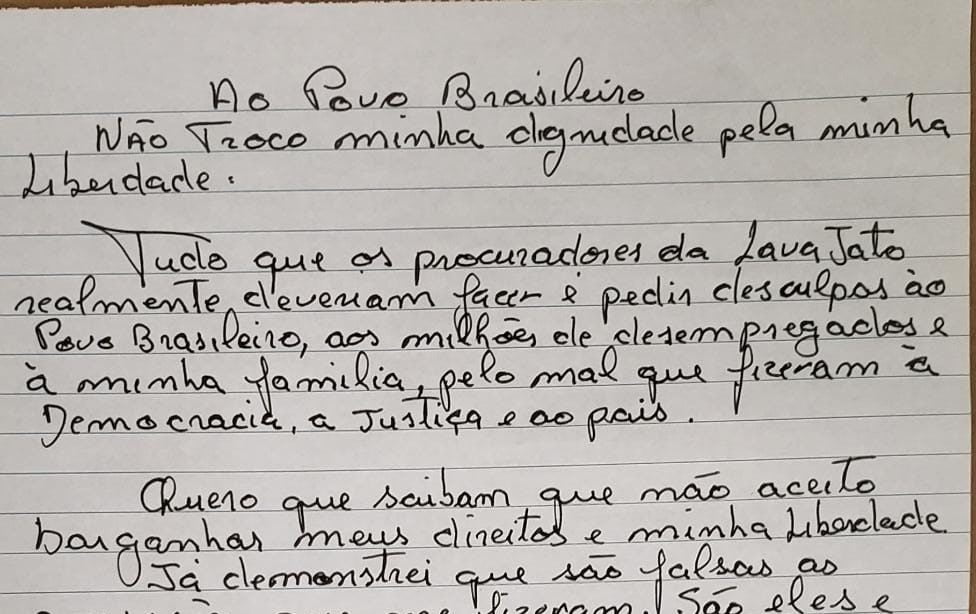 Ao Povo Brasileiro
NÃO TROCO minha dignidade pela minha
Liberdade.
Tudo que os procuradores da Lava Jato
realmente deveriam fazer é pedir desculpas ao
Povo Brasileiro, aos milhões de desempregados e
à minha familia, pelo mal que fizeram à
Democracia, a Justiça e ao pais.
Quero que saibam que não aceito
barganhar meus direitos e minha Liberdade
Já demonstrei que são falsas as
fizeram. São eles e